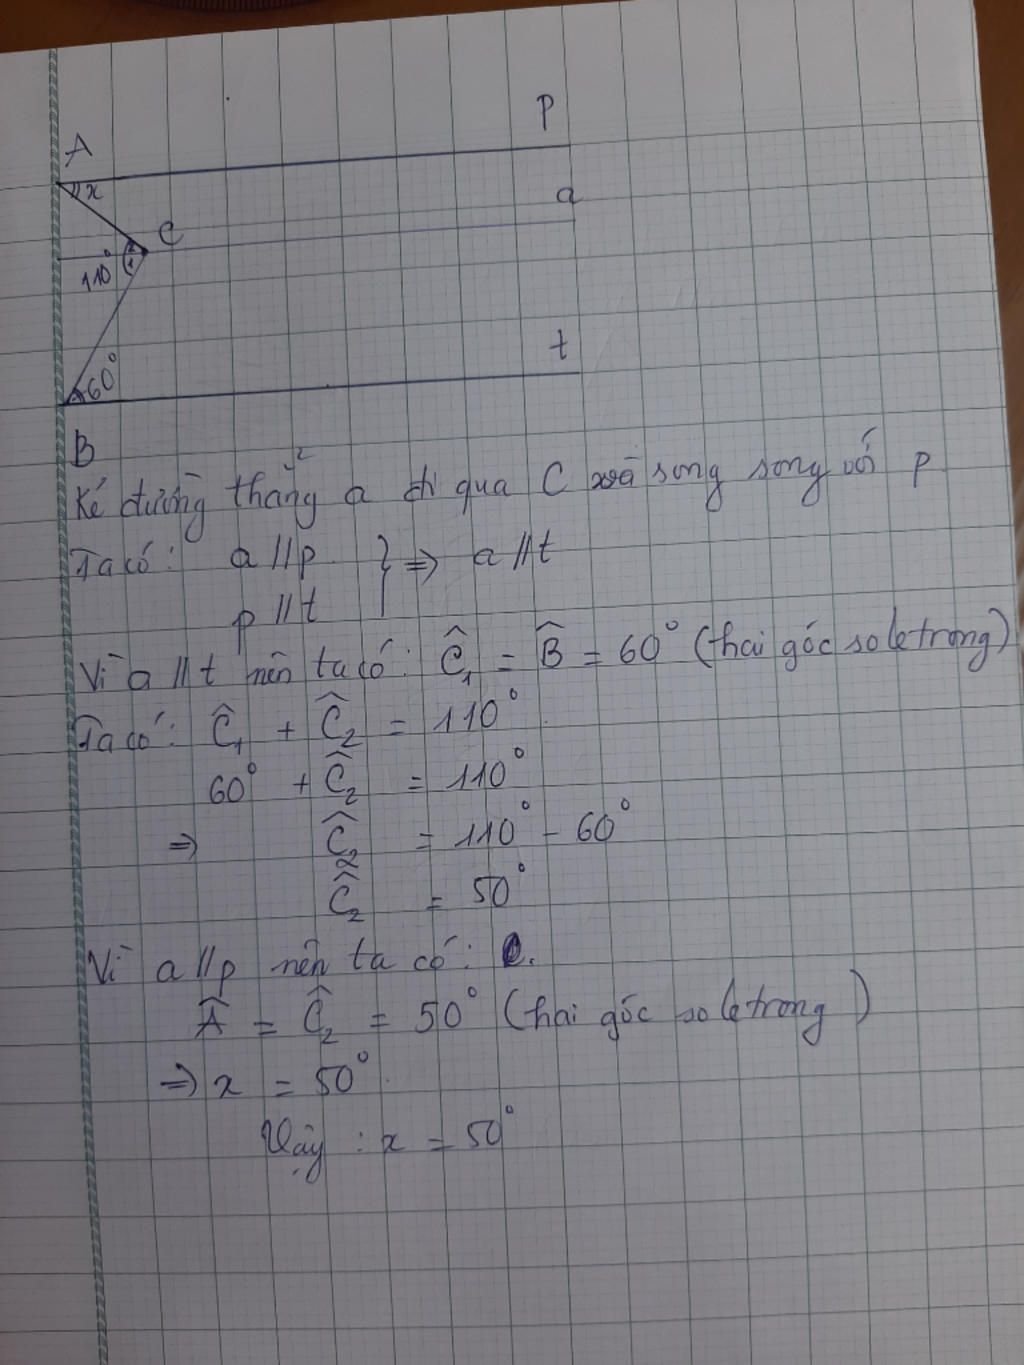 A
P
x
C
a
110°
2
1
t
60°
B
Kẻ đường thẳng a đi qua C và song song với p
Ta có: a // p } ⇒ a // t
p // t
Vì a // t nên ta có: Ĉ₁ = B̂ = 60° (hai góc so le trong)
Ta có: Ĉ₁ + Ĉ₂ = 110°
60° + Ĉ₂ = 110°
⇒ Ĉ₂ = 110° - 60°
Ĉ₂ = 50°
Vì a // p nên ta có:
Â = Ĉ₂ = 50° (hai góc so le trong)
⇒ x = 50°
Vậy : x = 50°